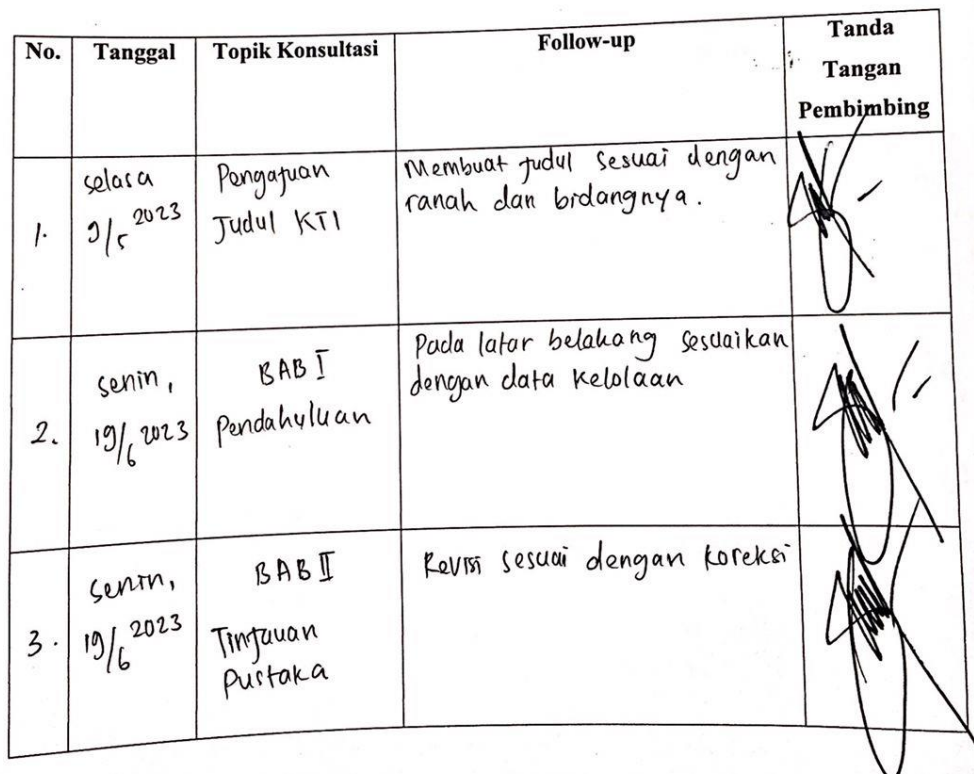 No. Tanggal Topik Konsultasi Follow-up Tanda
Tangan
Pembimbing
1. selasa 9/5 2023 Pengajuan Judul KTI Membuat judul sesuai dengan
ranah dan bidangnya.
2. senin, 19/6 2023 BAB I Pendahuluan Pada latar belakang sesuaikan
dengan data kelolaan
3. senin, 19/6 2023 BAB II Tinjauan Pustaka Revisi sesuai dengan koreksi